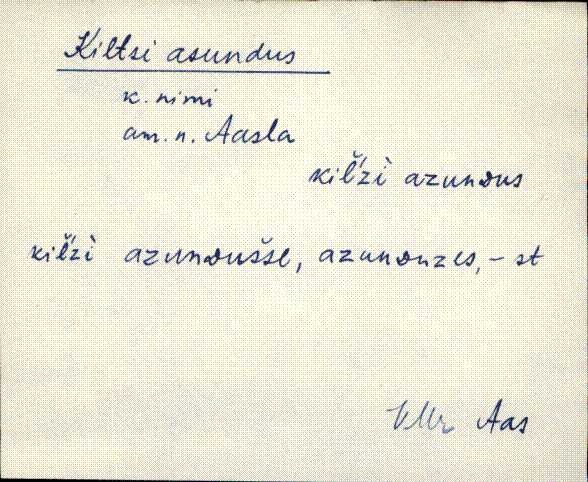 Kiltsi asundus
k. nimi
am. n. Aasla
kil̆'zì azundus
kil̆'zì azundušše, azunduzes, – st
VMr Aas